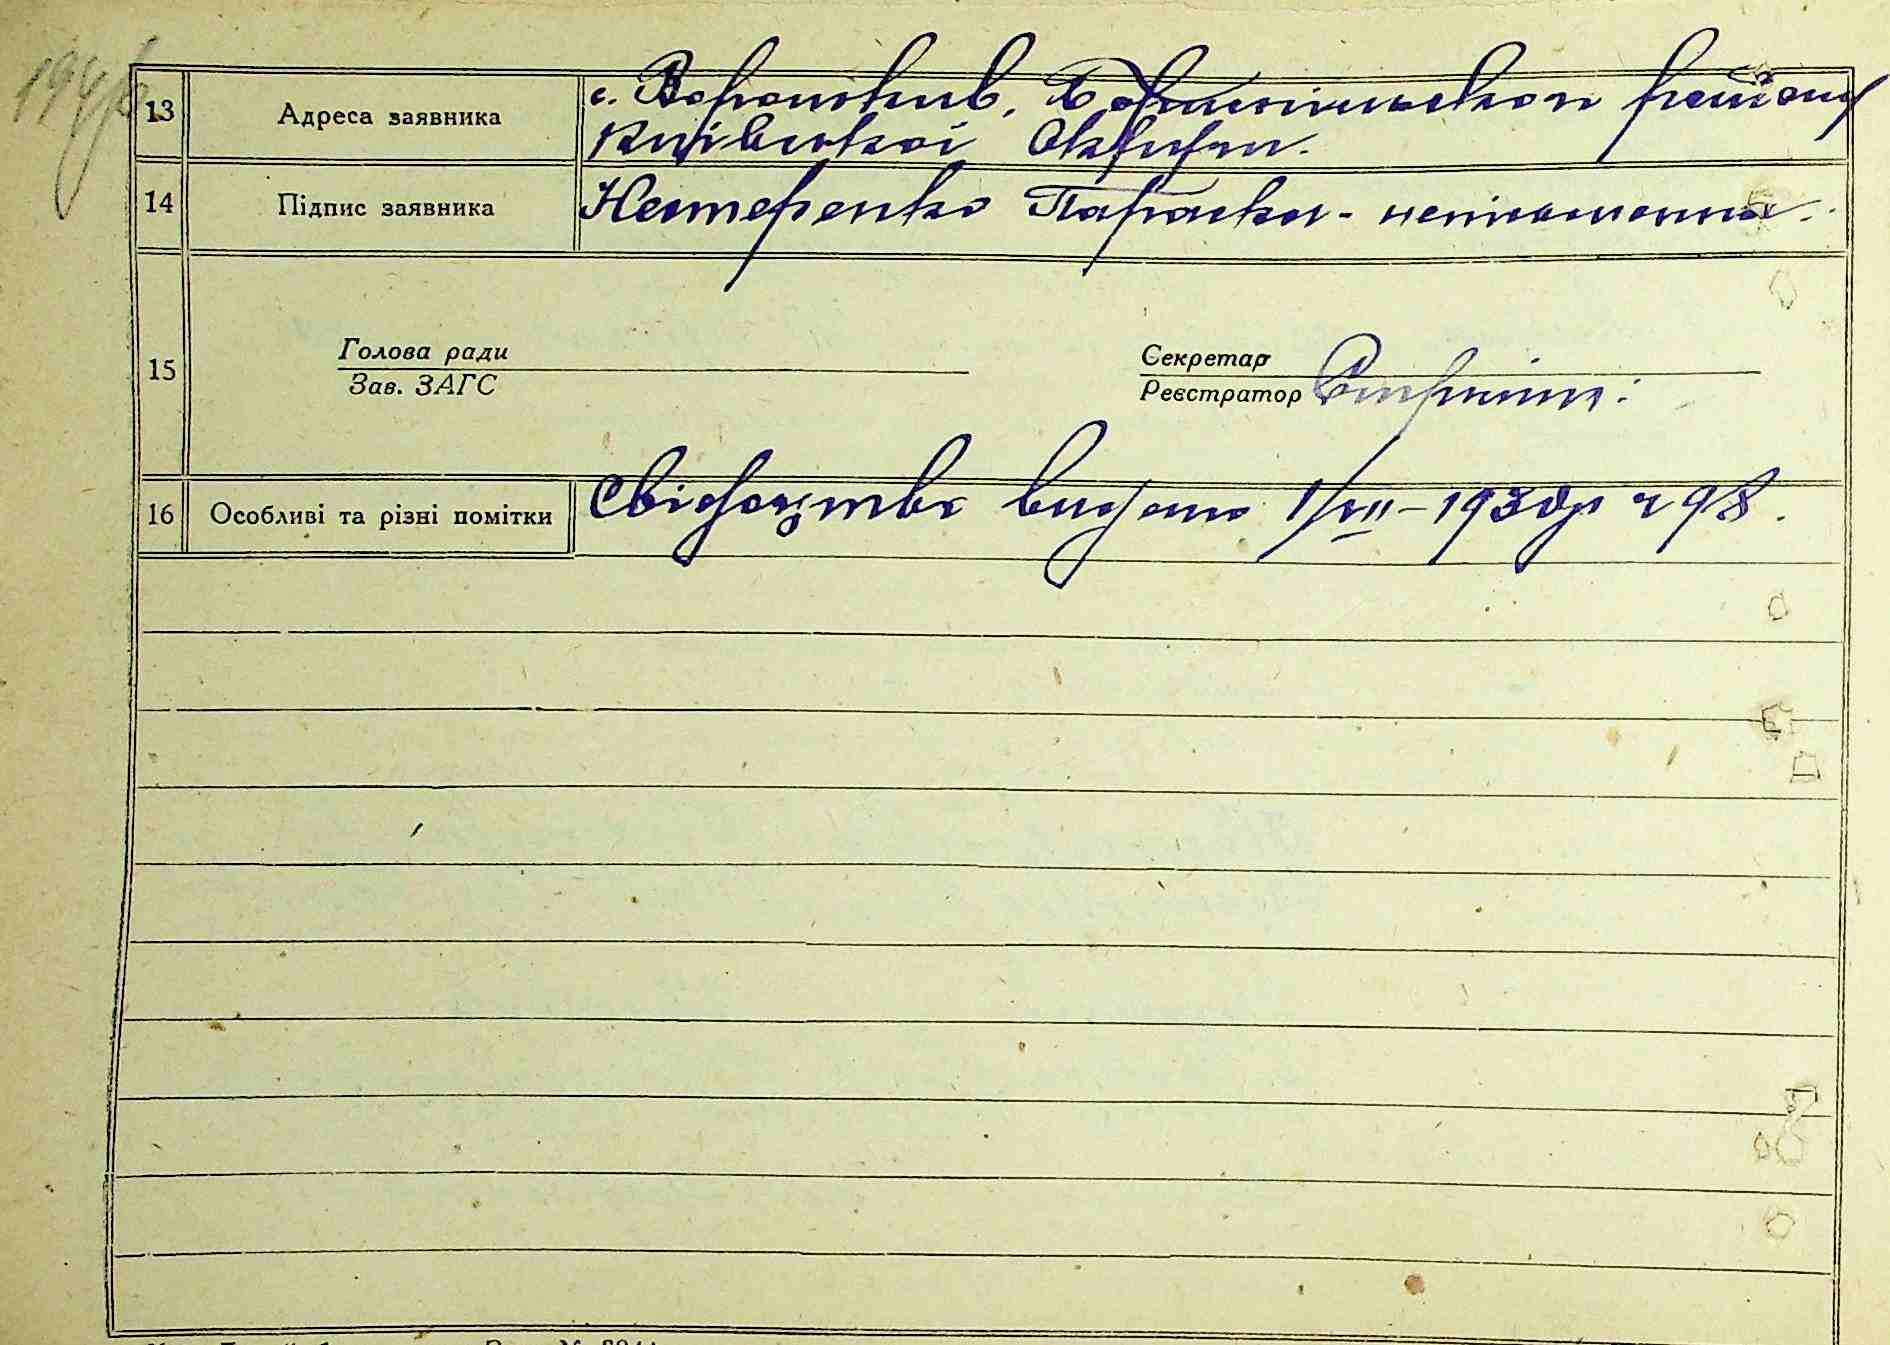 13 Адреса заявника с. Вороньків, Бориспільського району
Київської Округи.
14 Підпис заявника Нестеренко Параска - неписьменна.
15 Голова ради Секретар
Зав. ЗАГС Реєстратор
16 Особливі та різні помітки Свідоцтво видано 1/VII-1930р ч 98.